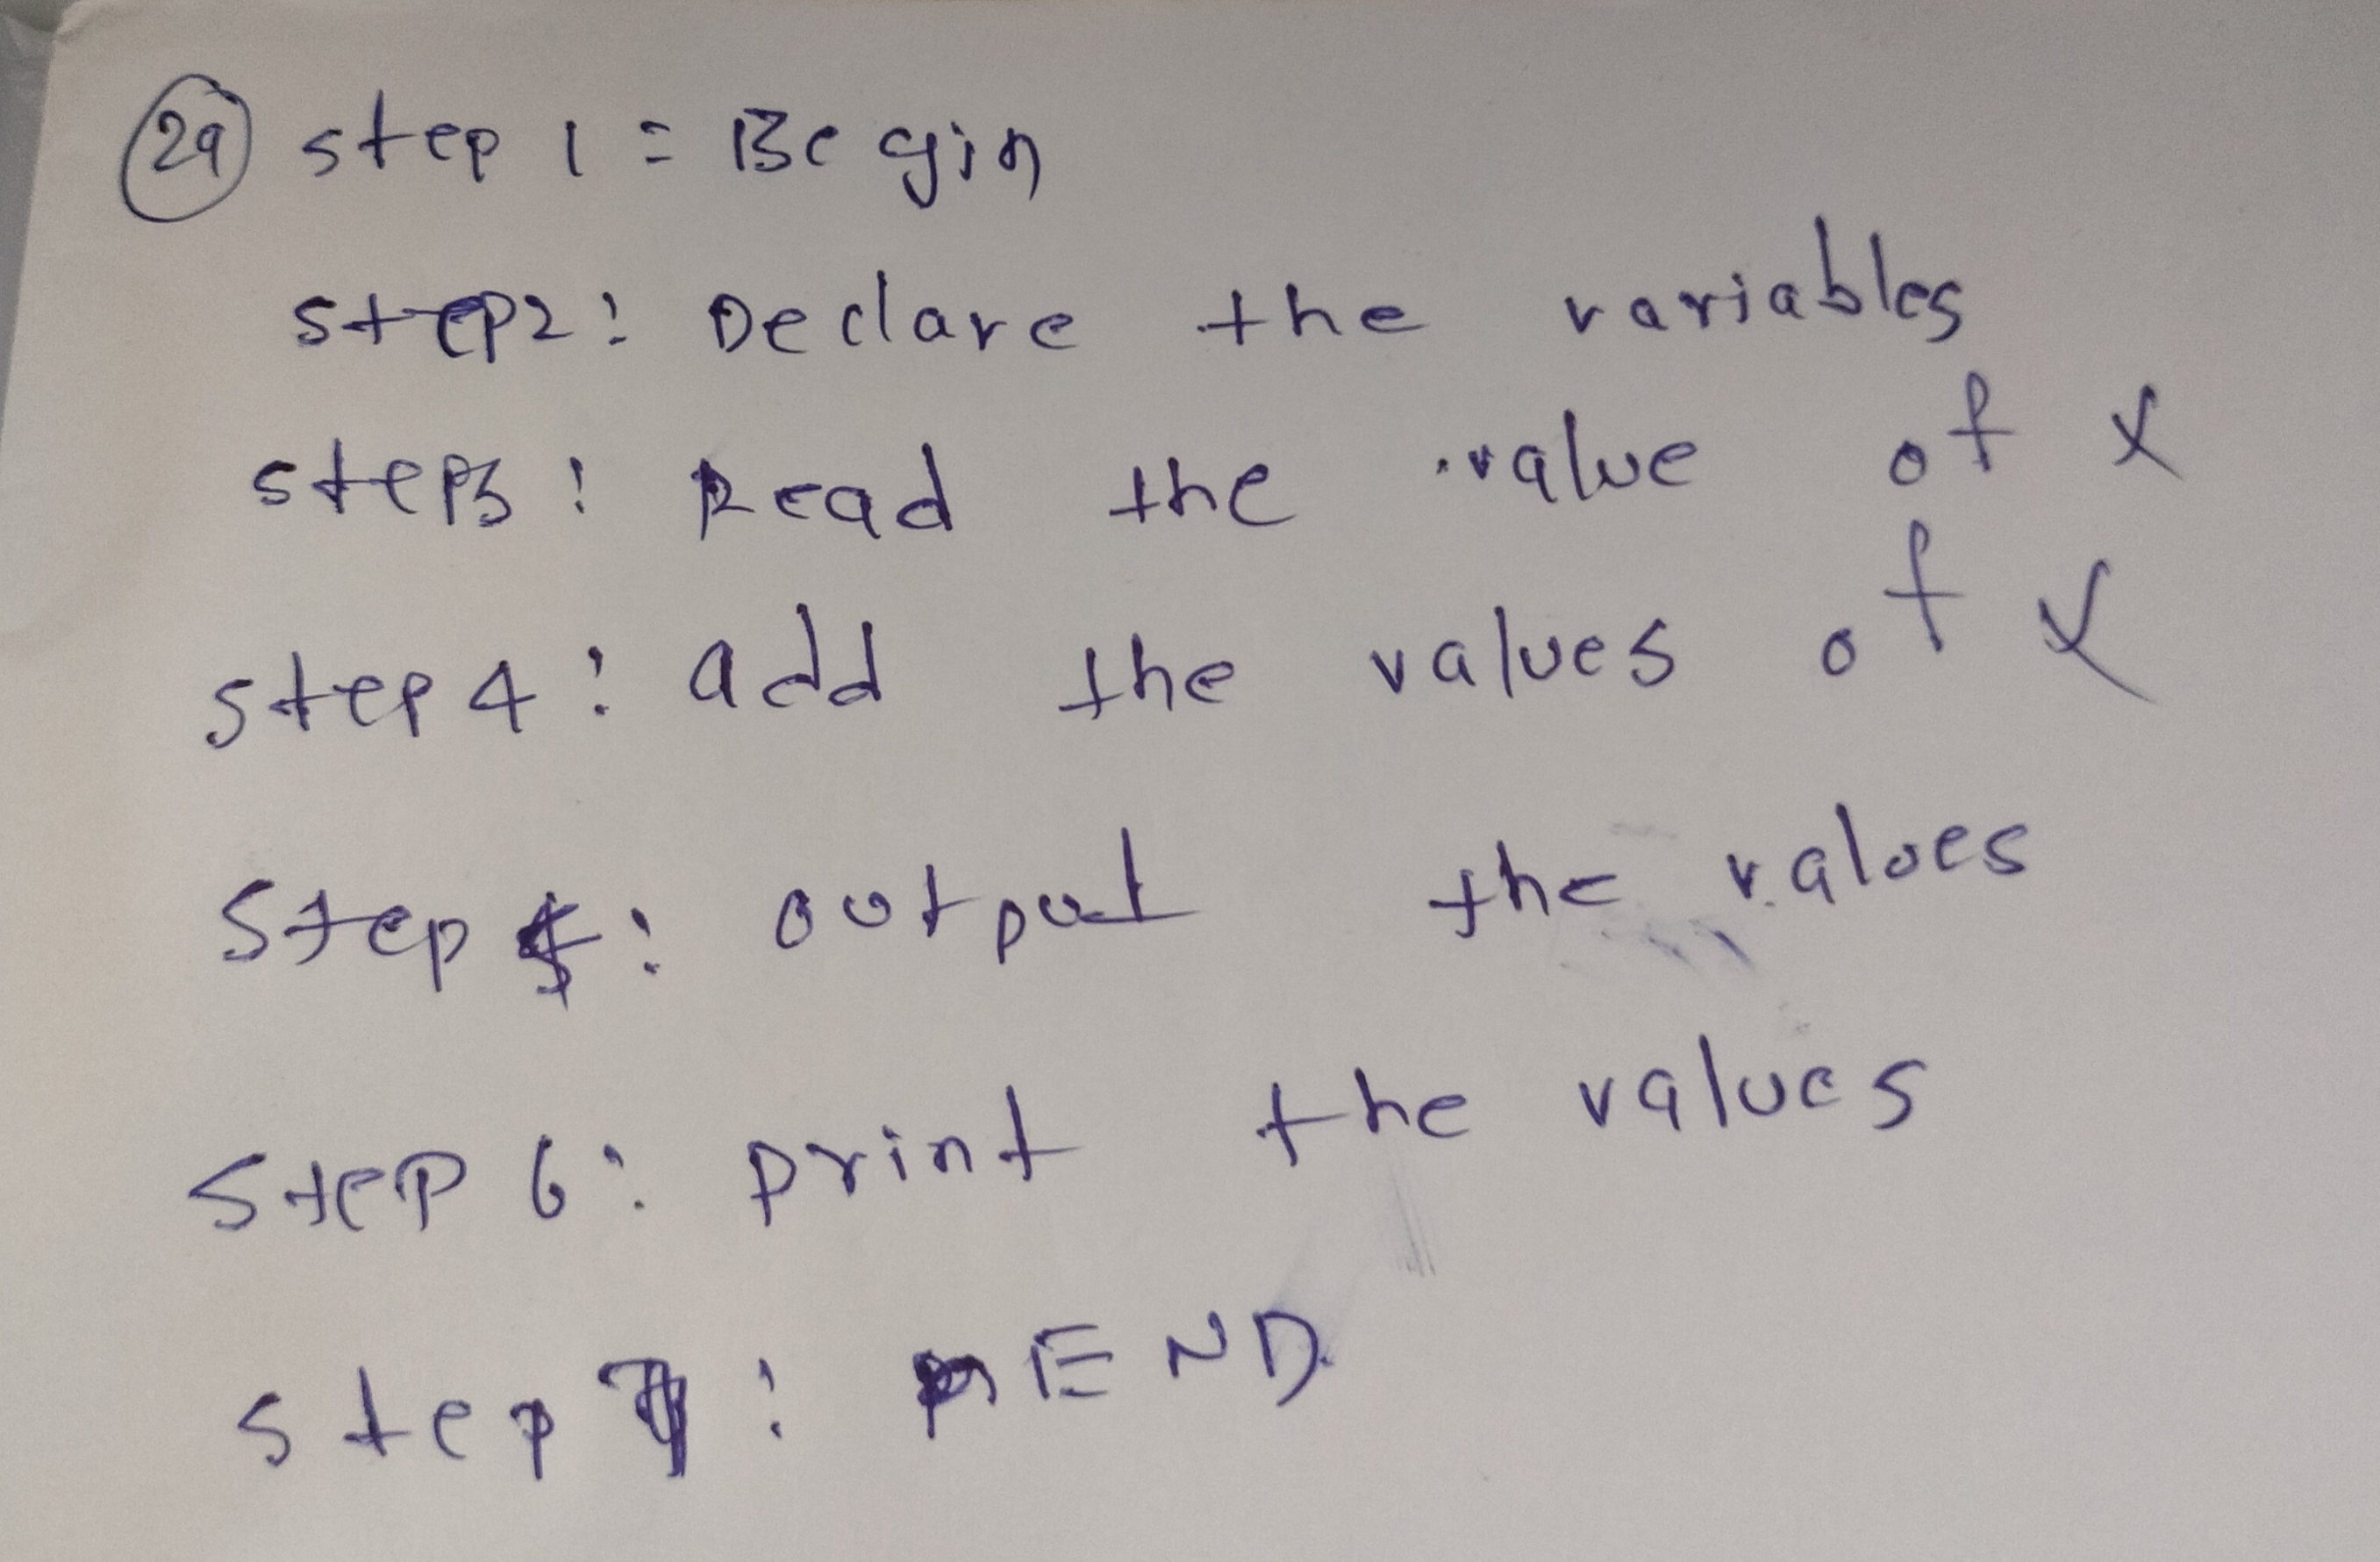 29 step 1 = Begin
step2: Declare the variables
step3: Read the value of x
step 4: add the values of x
Step 5: output the values
Step 6: print the values
step 7: END